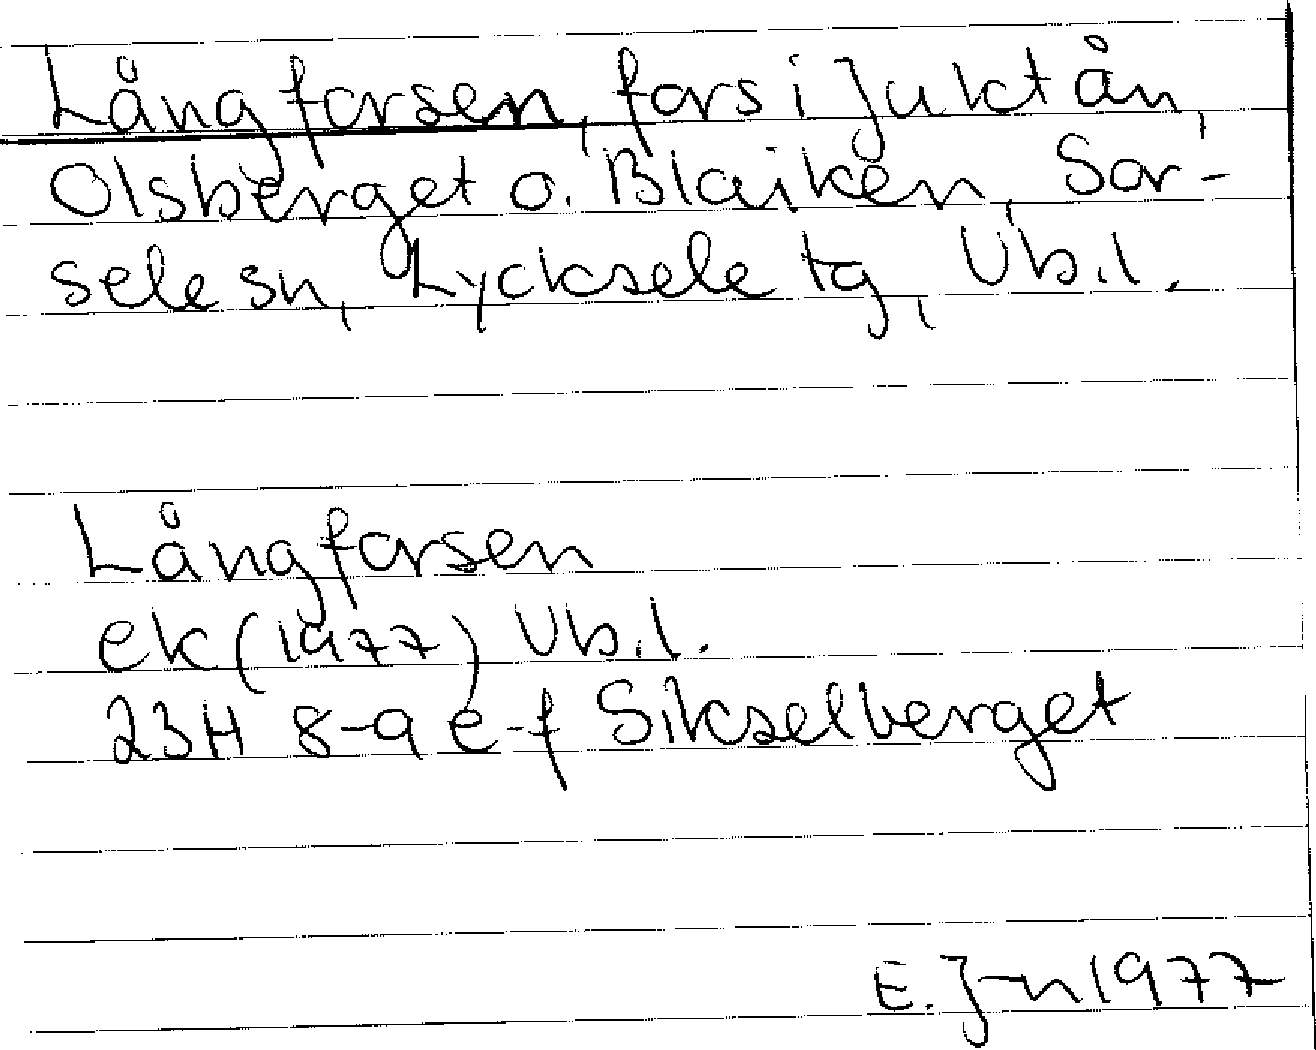 Långforsen, fors i Juktån,
Olsberget o. Blaiken, Sor-
sele sn, Lycksele tg, Vb.l.
Långforsen
ek (1977) Vb.l.
23H 8-9 e-f Sikselberget
E. J-n 1977